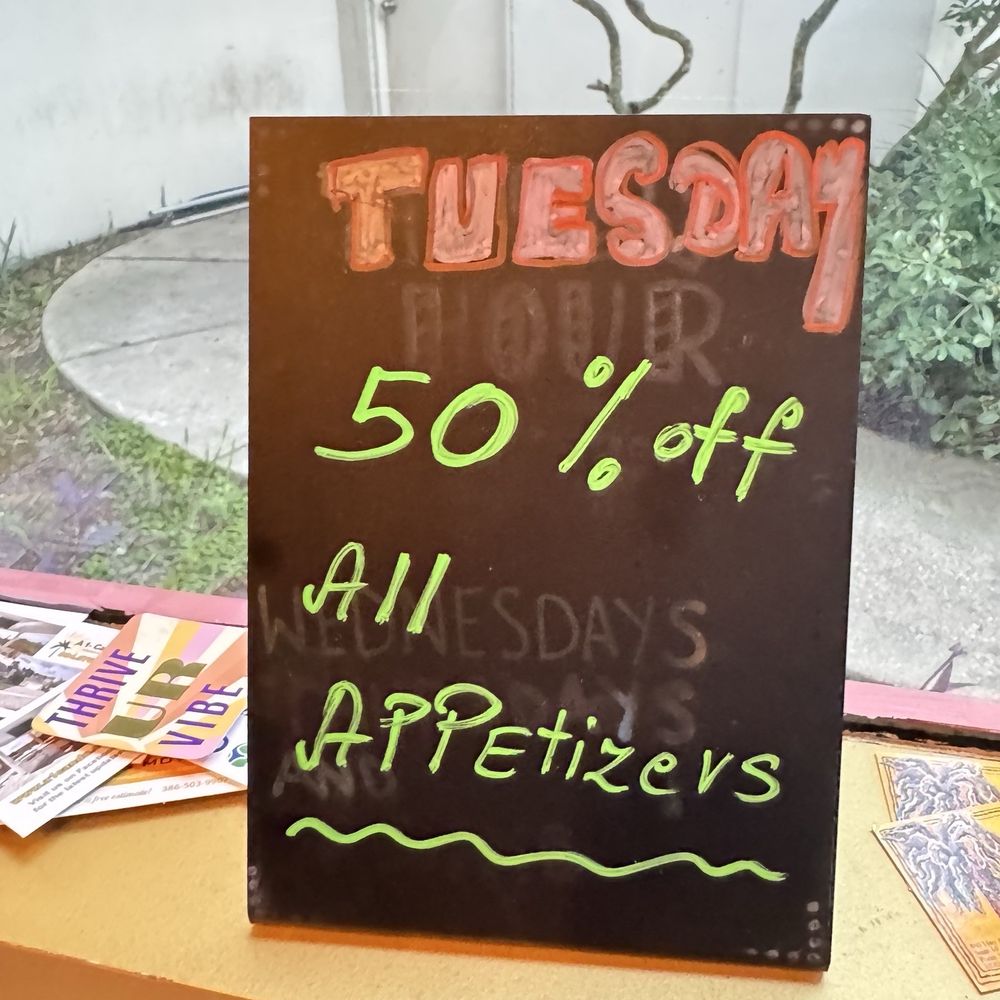 TUESDAY
HOUR
50 % off
All
WEDNESDAYS
APPEtizers
AND
THRIVE
UR
VIBE
Visit us on Faceb
for the latest upda
free estimate! 386-503-99